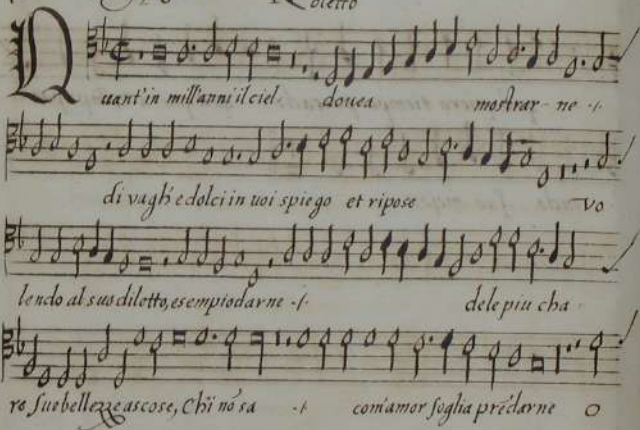 oletto
Quant'in mill'anni il ciel douea mostrar-ne ·/·
di vagh' e dolci in uoi spiego et ripose Vo
lendo al suo diletto, esempio darne ·/· dele piu cha
re sue bellezze ascose, Chi nõ sa ·/· com'amor soglia prẽdarne O